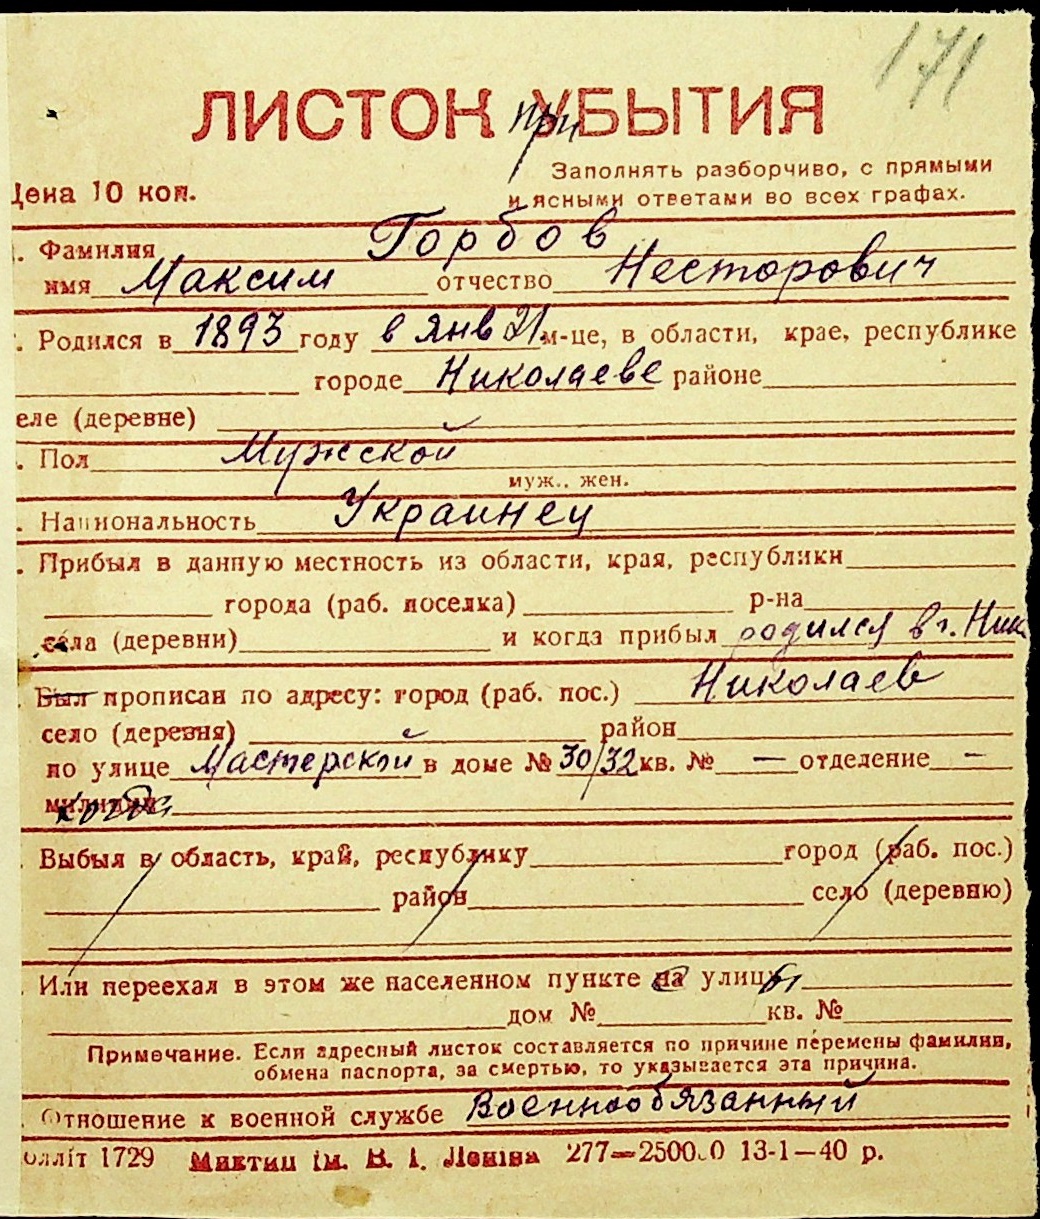 171
ЛИСТОК УБЫТИЯ
при
Заполнять разборчиво, с прямыми
Цена 10 коп. и ясными ответами во всех графах.
Фамилия Горбов
имя Максим отчество Несторович
Родился в 1893 году в янв 21 м-це, в области, крае, республике
городе Николаеве районе
еле (деревне)
Пол Мужской
муж., жен.
Национальность Украинец
Прибыл в данную местность из области, края, республики
города (раб. поселка) р-на
села (деревни) и когда прибыл родился в г. Ник
Был прописан по адресу: город (раб. пос.) Николаев
село (деревня) район
по улице Мастерской в доме № 30/32 кв. № — отделение —
милиции когда
Выбыл в область, край, республику город (раб. пос.)
район село (деревню)
Или переехал в этом же населенном пункте на с улицы
дом № кв. №
Примечание. Если адресный листок составляется по причине перемены фамилии,
обмена паспорта, за смертью, то указывается эта причина.
Отношение к военной службе Военнообязанный
олліт 1729 Миктип ім. В. І. Леніна 277—25000 13-1—40 р.